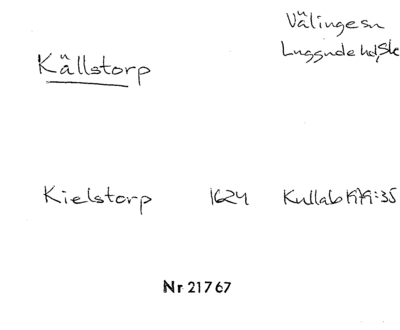 Källstorp
Välinge sn
Luggude hd, Sk
Kielstorp 1624 Kullab 1979:35
Nr 21767